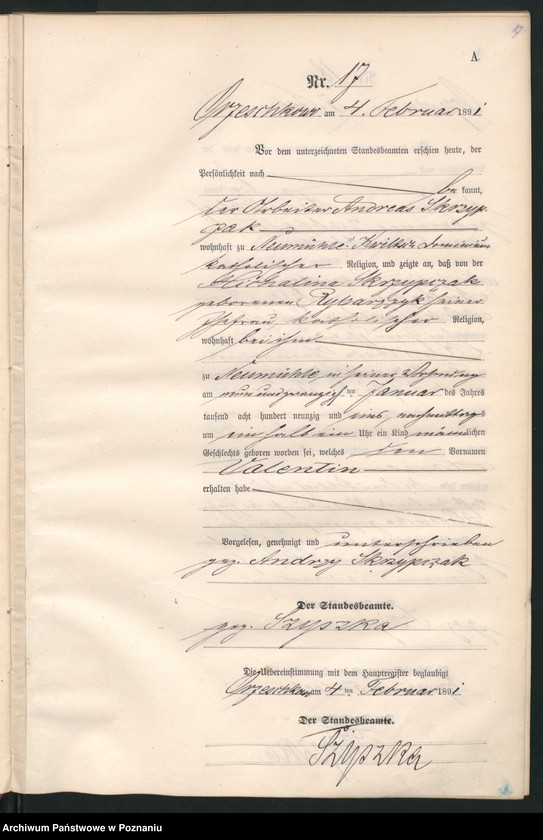 A.
Nr. 17
Orzeschkowo am 4. Februar 1891
Vor dem unterzeichneten Standesbeamten erschien heute, der
Persönlichkeit nach
be kannt,
der Arbeiter Andreas Skrzyp-
czak
wohnhaft zu Neumühle-Kwiltsch Dominium
katholischer Religion, und zeigte an, daß von der
Michalina Skrzypczak
geborenen Rybarczyk seiner
Ehefrau, katholischer Religion,
wohnhaft bei ihm
zu Neumühle, in seiner Wohnung
am neunundzwanzigsten ten Januar des Jahres
tausend acht hundert neunzig und eins, nachmittags
um ein halb ein Uhr ein Kind männlichen
Geschlechts geboren worden sei, welches den Vornamen
Valentin
erhalten habe
Vorgelesen, genehmigt und unterschrieben
gez. Andrzy Skrzypczak
Der Standesbeamte.
gez. Szypzka
Die Uebereinstimmung mit dem Hauptregister beglaubigt
Orzeschkowo am 4 ten Februar 1891.
Der Standesbeamte.
Szypzka
Archiwum Państwowe w Poznaniu